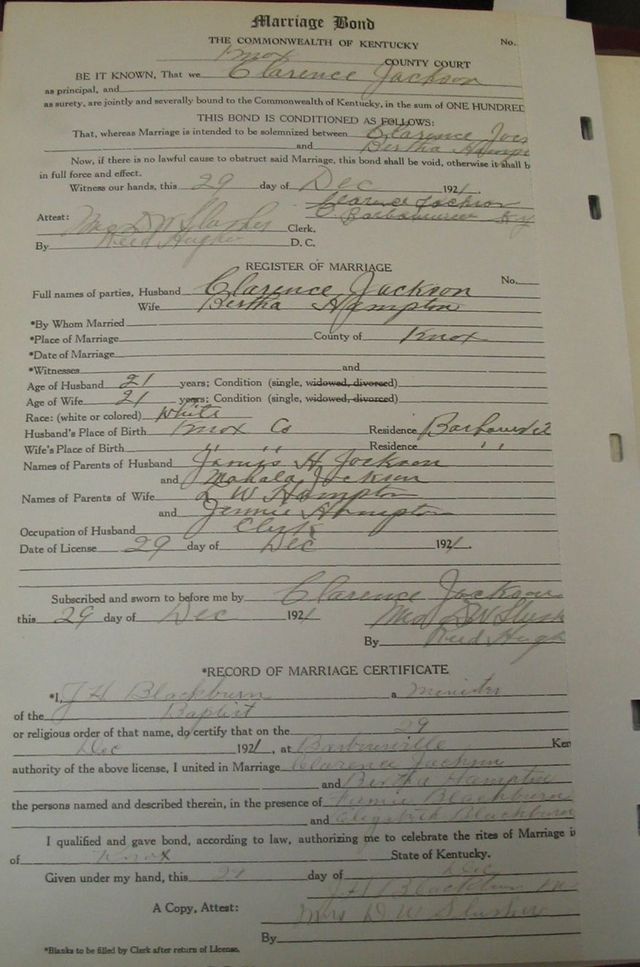 Marriage Bond
THE COMMONWEALTH OF KENTUCKY No.
Knox COUNTY COURT
BE IT KNOWN, That we Clarence Jackson
as principal, and
as surety, are jointly and severally bound to the Commonwealth of Kentucky, in the sum of ONE HUNDRED
THIS BOND IS CONDITIONED AS FOLLOWS:
That, whereas Marriage is intended to be solemnized between Clarence Jacks
and Bertha Hamp
Now, if there is no lawful cause to obstruct said Marriage, this bond shall be void, otherwise it shall b
in full force and effect.
Witness our hands, this 29 day of Dec 1921.
Clarence Jackson
Attest: Barbourville Ky
Mrs D W Slusher Clerk,
By Reed Hughes D. C.
REGISTER OF MARRIAGE
No.
Full names of parties, Husband Clarence Jackson
Wife Bertha Hampton
*By Whom Married
*Place of Marriage County of Knox
*Date of Marriage
*Witnesses and
Age of Husband 21 years; Condition (single, widowed, divorced)
Age of Wife 21 years; Condition (single, widowed, divorced)
Race: (white or colored) White
Husband's Place of Birth Knox Co Residence Barbourvil
Wife's Place of Birth " " Residence " "
Names of Parents of Husband James H Jackson
and Mahala Jackson
Names of Parents of Wife W Hampton
and Jennie Hampton
Occupation of Husband Clerk
Date of License 29 day of Dec 1921.
Subscribed and sworn to before me by Clarence Jackson
this 29 day of Dec 1921 Mrs D W Slush
By Reed Hugh
*RECORD OF MARRIAGE CERTIFICATE
*I, J H Blackburn a Minister
of the Baptist
or religious order of that name, do certify that on the 29
Dec 1921, at Barbourville Ken
authority of the above license, I united in Marriage Clarence Jackson
and Bertha Hampton
the persons named and described therein, in the presence of Blackburn
and Elizabeth Blackburn
I qualified and gave bond, according to law, authorizing me to celebrate the rites of Marriage i
of Knox State of Kentucky.
Given under my hand, this 29 day of Dec
J H Blackburn
A Copy, Attest: Mrs D W Slusher
By
*Blanks to be filled by Clerk after return of License.